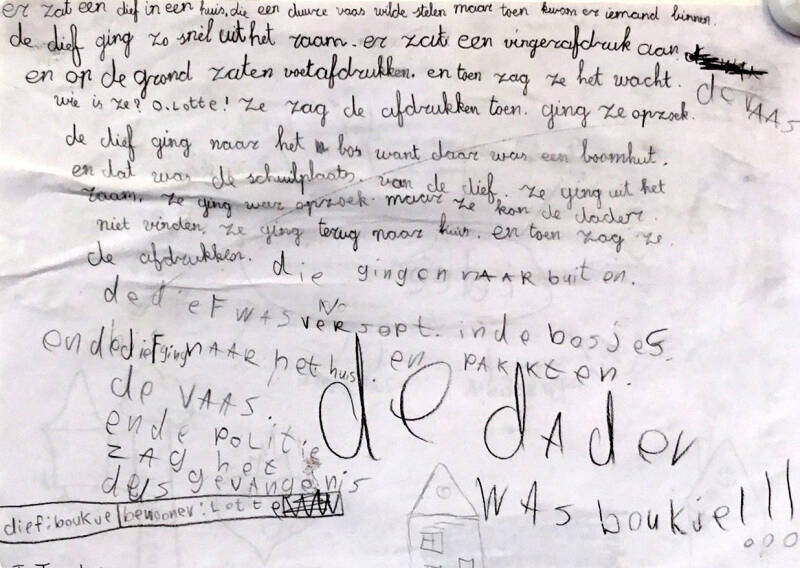 er zat een dief in een huis, die een duure vaas wilde stelen maar toen kwam er iemand binnen.
de dief ging zo snel uit het raam. er zat een vingerafdruk aan.
de VAAS
en op de grond zaten voetafdrukken. en toen zag ze het wacht.
wie is ze? O. Lotte! ze zag de afdrukken toen. ging ze opzoek.
de dief ging naar het bos want daar was een boomhut.
en dat was de schuilplaats van de dief. ze ging uit het
raam. ze ging war opzoek. maar ze kon de dader.
niet vinden. ze ging terug naar huis. en toen zag ze.
de afdrukken. die gingen NAAR buiten.
de dieF WAS VERstopt. in de bosjes.
en de dieF ging NAAR het huis. en PAKKTen.
de VAAS.
en de POLitie
ZAG het
des gevangenis
de dAder
WAS boukje!!!
dief: boukje bewooner: Lotte